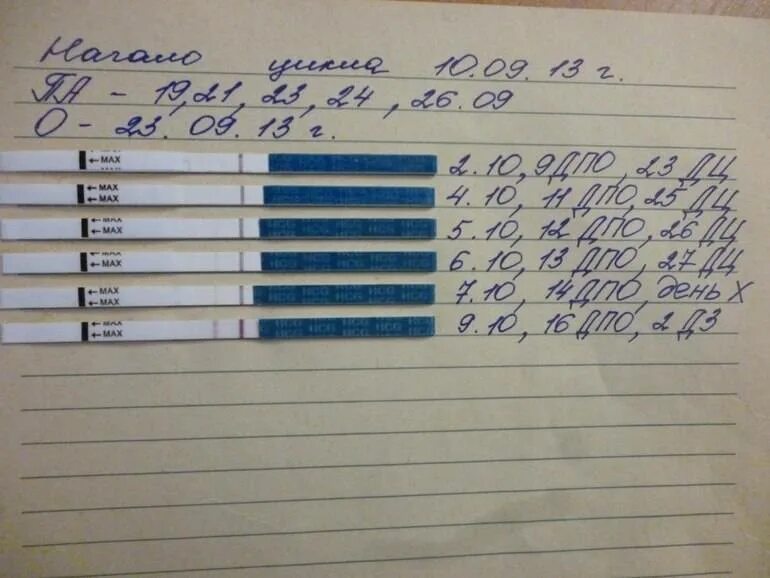 Начало цикла 10.09.13 г.
ПА - 19,21,23,24,26.09
О - 23.09.13 г.
←MAX 2.10, 9ДПО, 23 ДЦ
←MAX ←MAX 4.10, 11 ДПО, 25 ДЦ
←MAX HCG HCG HCG 5.10, 12 ДПО, 26 ДЦ
←MAX HCG HCG HCG 6.10, 13 ДПО, 27 ДЦ
←MAX HCG HCG HCG 7.10, 14 ДПО, день X
←MAX ←MAX HCG HCG HCG 9.10, 16 ДПО, 2 ДЗ